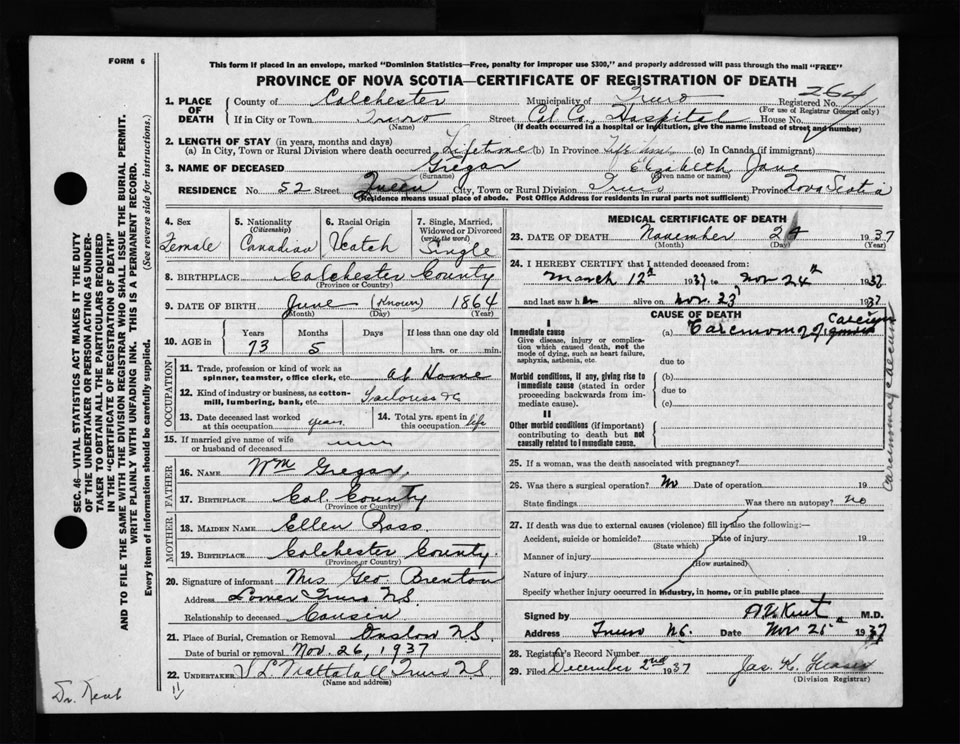 FORM 6
This form if placed in an envelope, marked "Dominion Statistics—Free, penalty for improper use $300," and properly addressed will pass through the mail "FREE"
PROVINCE OF NOVA SCOTIA—CERTIFICATE OF REGISTRATION OF DEATH
SEC. 46—VITAL STATISTICS ACT MAKES IT THE DUTY
OF THE UNDERTAKER OR PERSON ACTING AS UNDER-
TAKER TO OBTAIN ALL THE PARTICULARS REQUIRED
IN THE "CERTIFICATE OF REGISTRATION OF DEATH"
AND TO FILE THE SAME WITH THE DIVISION REGISTRAR WHO SHALL ISSUE THE BURIAL PERMIT.
WRITE PLAINLY WITH UNFADING INK. THIS IS A PERMANENT RECORD.
Every item of information should be carefully supplied. (See reverse side for instructions.)
1. PLACE OF DEATH
County of Colchester Municipality of Truro Registered No. 264
(For use of Registrar General only)
If in City or Town Truro Street Col. Co., Hospital House No.
(Name) (If death occurred in a hospital or institution, give the name instead of street and number)
2. LENGTH OF STAY (in years, months and days)
(a) In City, Town or Rural Division where death occurred Lifetime (b) In Province Life time (c) In Canada (if immigrant)
3. NAME OF DECEASED Gregor Elizabeth Jane
(Surname) (Given name or names)
RESIDENCE No. 52 Street Queen City, Town or Rural Division Truro Province Nova Scotia
(Residence means usual place of abode. Post Office Address for residents in rural parts not sufficient)
4. Sex Female
5. Nationality (Citizenship) Canadian
6. Racial Origin
7. Single, Married, Widowed or Divorced (write the word) Single
8. BIRTHPLACE Colchester County
(Province or Country)
9. DATE OF BIRTH June (Known) 1864
(Month) (Day) (Year)
10. AGE in Years Months Days If less than one day old
73 5 hrs. or min.
OCCUPATION
11. Trade, profession or kind of work as spinner, teamster, office clerk, etc. at Home
12. Kind of industry or business, as cotton-mill, lumbering, bank, etc. Tailoress
13. Date deceased last worked at this occupation years
14. Total yrs. spent in this occupation life
15. If married give name of wife or husband of deceased
FATHER
16. NAME Wm Gregor
17. BIRTHPLACE Col. County
(Province or Country)
MOTHER
18. MAIDEN NAME Ellen Ross
19. BIRTHPLACE Colchester County
(Province or Country)
20. Signature of informant Mrs Geo. Brenton
Address Lower Truro N.S.
Relationship to deceased Cousin
21. Place of Burial, Cremation or Removal Onslow N.S.
Date of burial or removal Nov. 26, 1937
22. UNDERTAKER Truro N.S.
(Name and address)
11
Dr. Kent
MEDICAL CERTIFICATE OF DEATH
23. DATE OF DEATH November 24 1937
(Month) (Day) (Year)
24. I HEREBY CERTIFY that I attended deceased from:
March 12th 1937 to Nov 24th 1937
and last saw her alive on Nov. 23 1937
CAUSE OF DEATH
I
Immediate cause (a) Carcinoma of
Give disease, injury or complication which caused death, not the mode of dying, such as heart failure, asphyxia, asthenia, etc.
due to
Morbid conditions, if any, giving rise to immediate cause (stated in order proceeding backwards from immediate cause).
(b)
due to
(c)
II
Other morbid conditions (if important) contributing to death but not causally related to immediate cause.
25. If a woman, was the death associated with pregnancy?
26. Was there a surgical operation? No Date of operation 19
State findings Was there an autopsy? no
27. If death was due to external causes (violence) fill in also the following:—
Accident, suicide or homicide? Date of injury 19
(State which)
Manner of injury
(How sustained)
Nature of injury
Specify whether injury occurred in industry, in home, or in public place
Signed by Kent M.D.
Address Truro N.S. Date Nov 25 1937
28. Registrar's Record Number
29. Filed December 2nd 1937 Jas. K. Fraser
(Division Registrar)